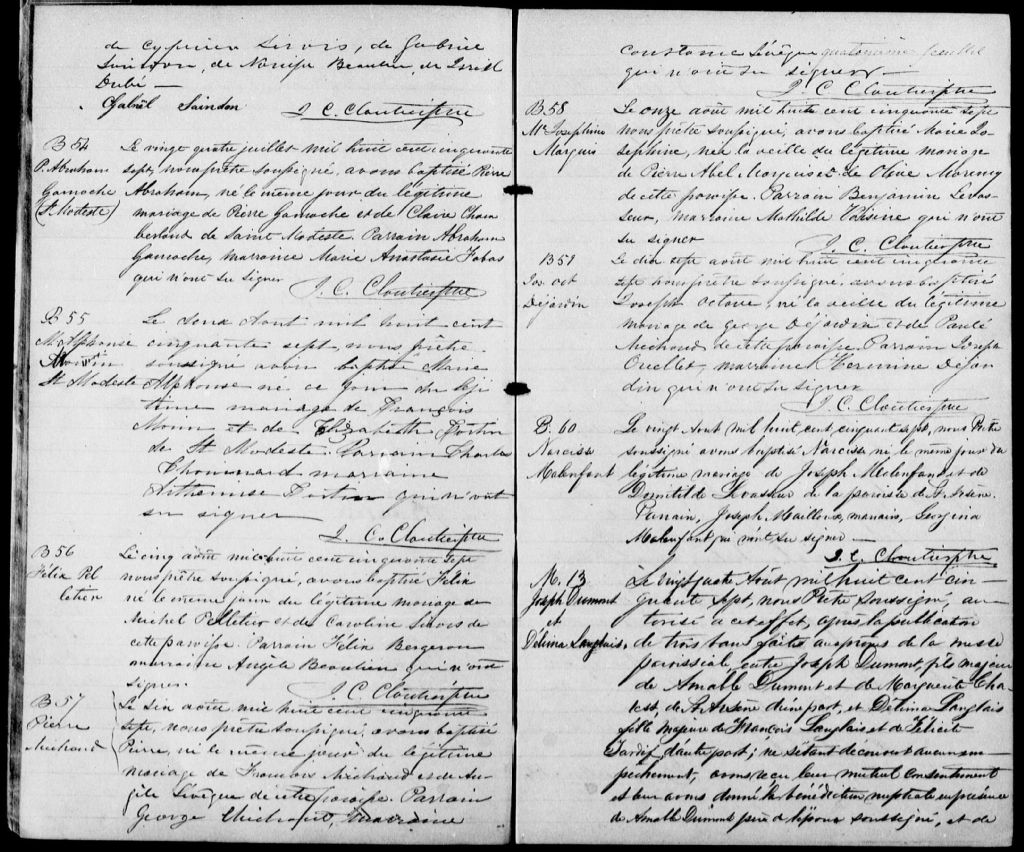 de Cyprien Sirois, de Gabriel
de Narcisse Beaulieu, de
Dubé —
Gabriël Saindon J. C. Cloutier ptre
B 54
P. Abraham
Gamache
(St Modeste)
Le vingt quatre juillet mil huit cent cinquante
sept, nous prêtre soussigné, avons baptisé Pierre
Abraham, né le même jour du légitime
mariage de Pierre Gamache et de Claire Cham
berland de Saint Modeste. Parrain Abraham
Gamache, marraine Marie Anastasie
qui n'ont su signer
J. C. Cloutier ptre
B 55
M. Alphonse
Morin
St Modeste
Le deux Aout mil huit cent
cinquante sept, nous prêtre
soussigné avons baptisé Marie
Alphonse né ce jour du légi
time mariage de François
Morin et de Elizabeth Fortin
de St Modeste. Parrain Charles
Chouinard marraine
Arthémise Fortin qui n'ont
su signer
J. C. Cloutier ptre
B 56
Félix Pel
letier
Le cinq août mil huit cent cinquante sept
nous prêtre soussigné, avons baptisé Félix
né le même jour du légitime mariage de
Michel Pelletier et de Caroline Sirois de
cette paroisse. Parrain Félix Bergeron
marraine Angèle Beaulieu qui n'ont
signer.
J. C. Cloutier ptre
B 57
Pierre
Michaud
Le six août mil huit cent cinquante
sept, nous prêtre soussigné, avons baptisé
Pierre, né le même jour du légitime
mariage de François Michaud et de An
gèle Lévêque de cette paroisse. Parrain
George Michaud, marraine
Constance Lévêque
qui n'ont su signer —
J. C. Cloutier ptre
B 58
Me Josephine
Marquis
Le onze août mil huit cent cinquante sept
nous prêtre soussigné, avons baptisé Marie Jo
sephine, née la veille du légitime mariage
de Pierre Abel Marquis et de Olive Morency
de cette paroisse. Parrain Benjamin Levas
seur, marraine Mathilde qui n'ont
su signer
J. C. Cloutier ptre
B 59
Jos Oct
Déjardin
Le dix sept août mil huit cent cinquante
sept nous prêtre soussigné, avons baptisé
Joseph Octave, né la veille du légitime
mariage de George Déjardin et de
Michaud de cette paroisse. Parrain Joseph
Ouellet, marraine Hermine Déjar
din qui n'ont su signer
J. C. Cloutier ptre
B. 60
Narcisse
Malenfant
Le vingt Aout mil huit cent cinquante sept, nous Prêtre
soussigné avons baptisé Narcisse né le même jour du
légitime mariage de Joseph Malenfant et de
Domitilde Levasseur de la paroisse de St Arsène.
Parrain, Joseph Mailloux, marraine, Georgina
Malenfant qui n'ont su signer —
J. C. Cloutier ptre
M. 13
Joseph Dumont
et
Délima Langlais.
Le vingt quatre Août mil huit cent cin —
quante sept, nous Prêtre soussigné, au —
torisé à cet effet, après la publication
de trois bans faite au prône de la messe
paroissial, entre Joseph Dumont, fils majeur
de Amable Dumont et de Marguerite Cha
rest, de St Arsène d'une part, et Délima Langlais
fille majeure de François Langlais et de Félicité
Tardif d'autre part; ne s'étant découvert aucun em —
pechement, avons reçu leur mutuel consentement
et leur avons donné la bénédiction nuptiale en présence
de Amable Dumont père de l'époux soussigné, et de